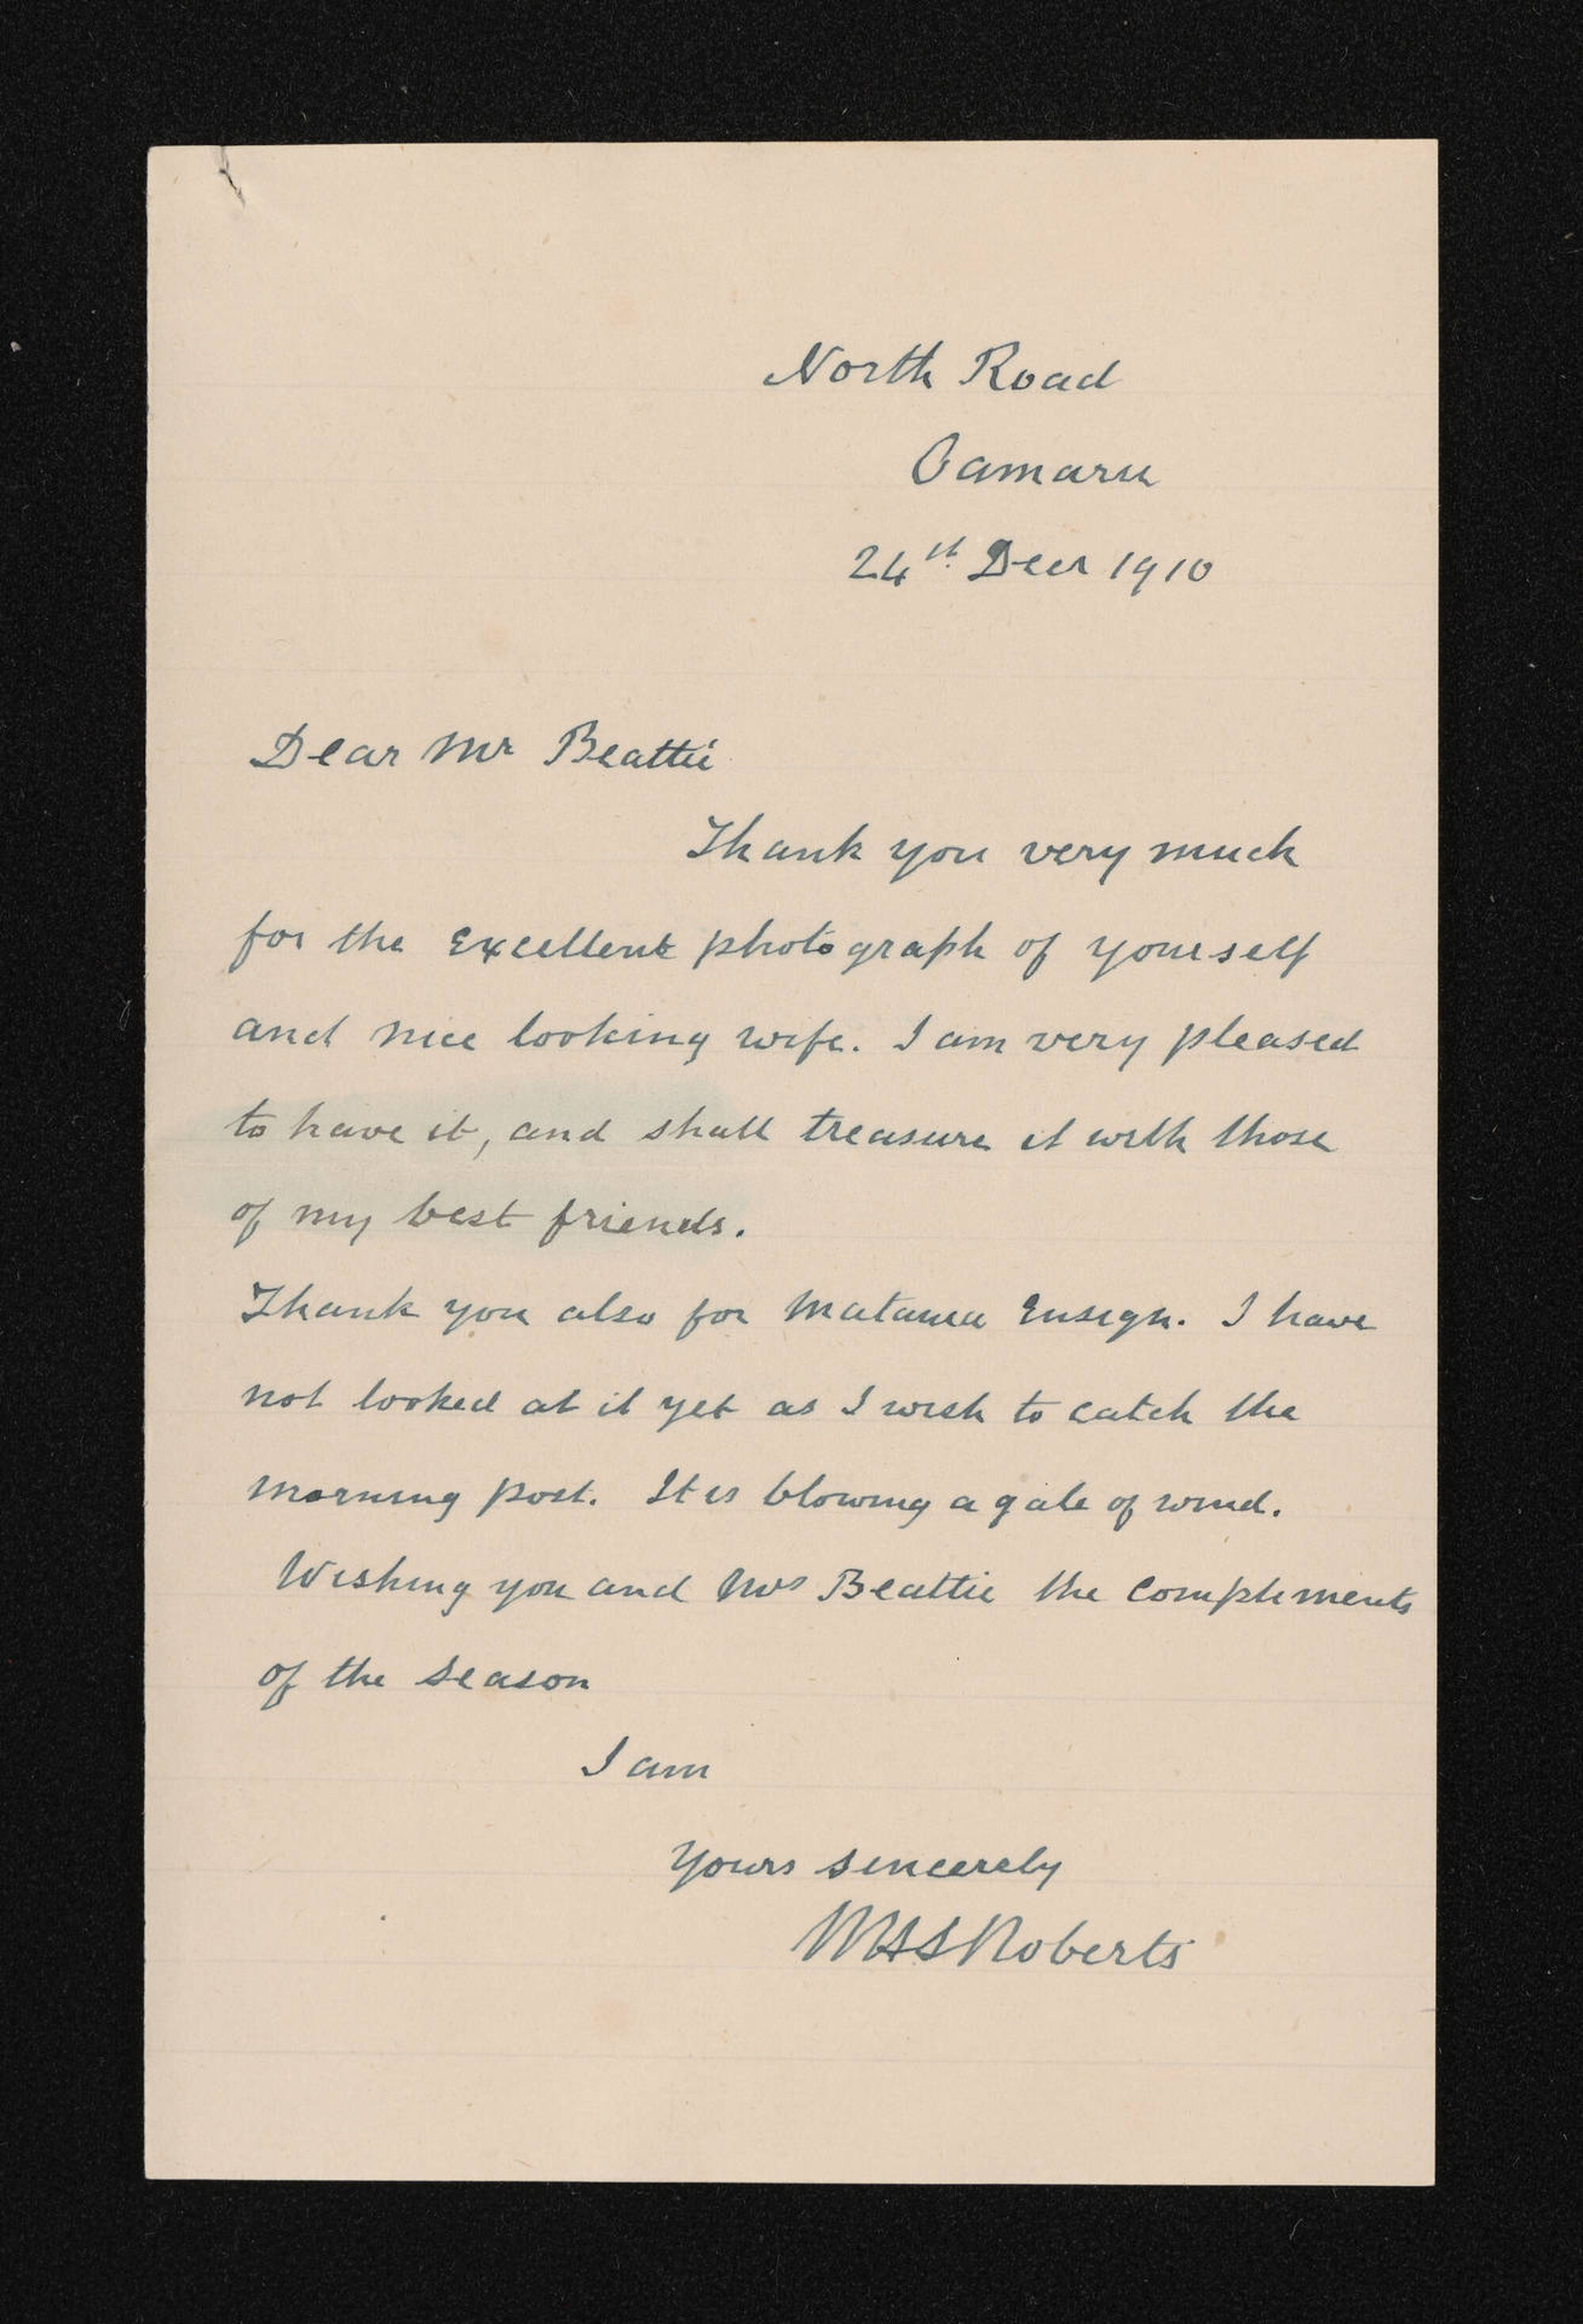 North Road
Oamaru
24th Decr 1910
Dear Mr Beattie
Thank you very much
for the Excellent photograph of yourself
and nice looking wife. I am very pleased
to have it, and shall treasure it with those
of my best friends.
Thank you also for Mataura Ensign. I have
not looked at it yet as I wish to catch the
morning post. It is blowing a gale of wind.
Wishing you and Mrs Beattie the Compliments
of the Season
I am
Yours sincerely
WHSRoberts